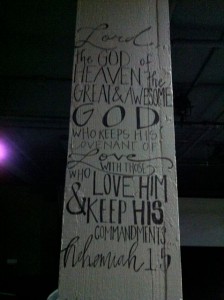 Lord
the GOD of
HEAVEN the
GREAT & AWESOME
GOD
WHO KEEPS HIS
COVENANT OF
Love
WITH THOSE
WHO LOVE HIM
& KEEP HIS
COMMANDMENTS
Nehemiah 1:5